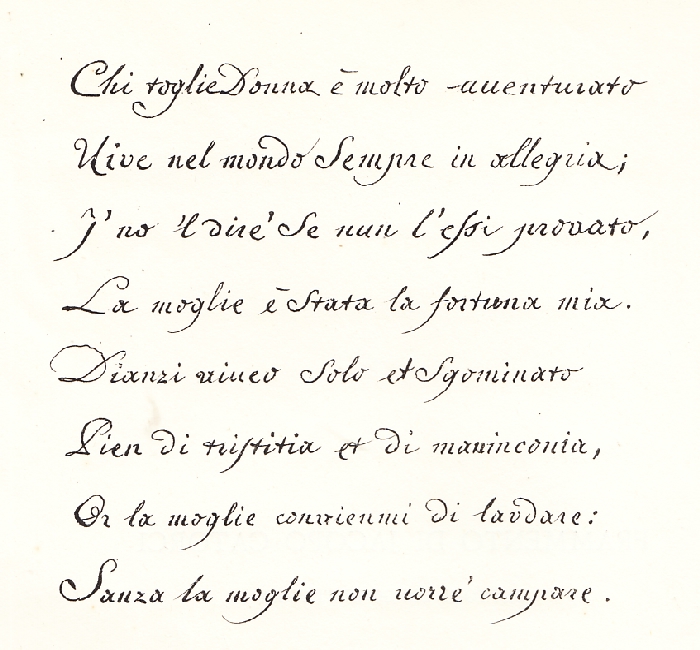 Chi toglie Donna è molto -uuenturato
Uive nel mondo Sempre in allegria;
J' no 'l dire' Se nun l'essi provato,
La moglie è Stata la fortuna mia.
Dianzi uiueo Solo et Sgominato
Pien di tristitia et di maninconia,
Or la moglie convienmi di laudare:
Sanza la moglie non uorre' campare.